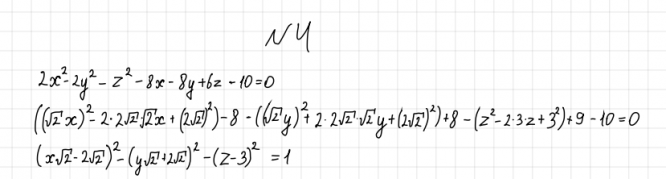 №4
2x²-2y²-z²-8x-8y+6z-10=0
((√2x)²-2·2√2·√2x+(2√2)²)-8-((√2y)²+2·2√2·√2y+(2√2)²)+8-(z²-2·3·z+3²)+9-10=0
(x√2-2√2)²-(y√2+2√2)²-(z-3)²=1